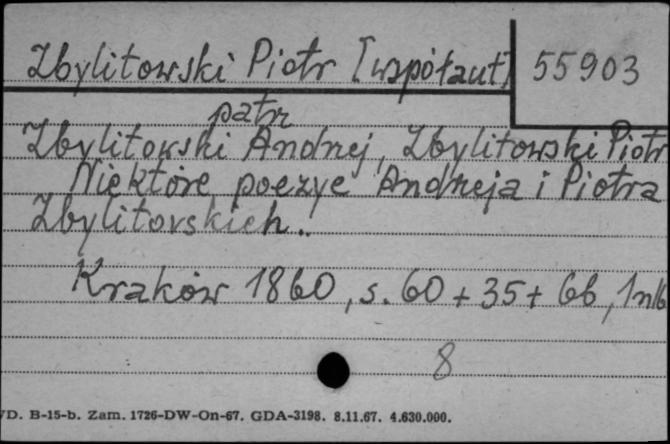 Zbylitowski Piotr [współaut] 55903
patr
Zbylitowski Andrzej, Zbylitowski Piotr
Niektóre poezye Andrzeja i Piotra
Zbylitovskich..
Kraków 1860, s. 60 + 35 + 66, 1 nlb
8
VD. B-15-b. Zam. 1726-DW-On-67. GDA-3198. 8.11.67. 4.630.000.